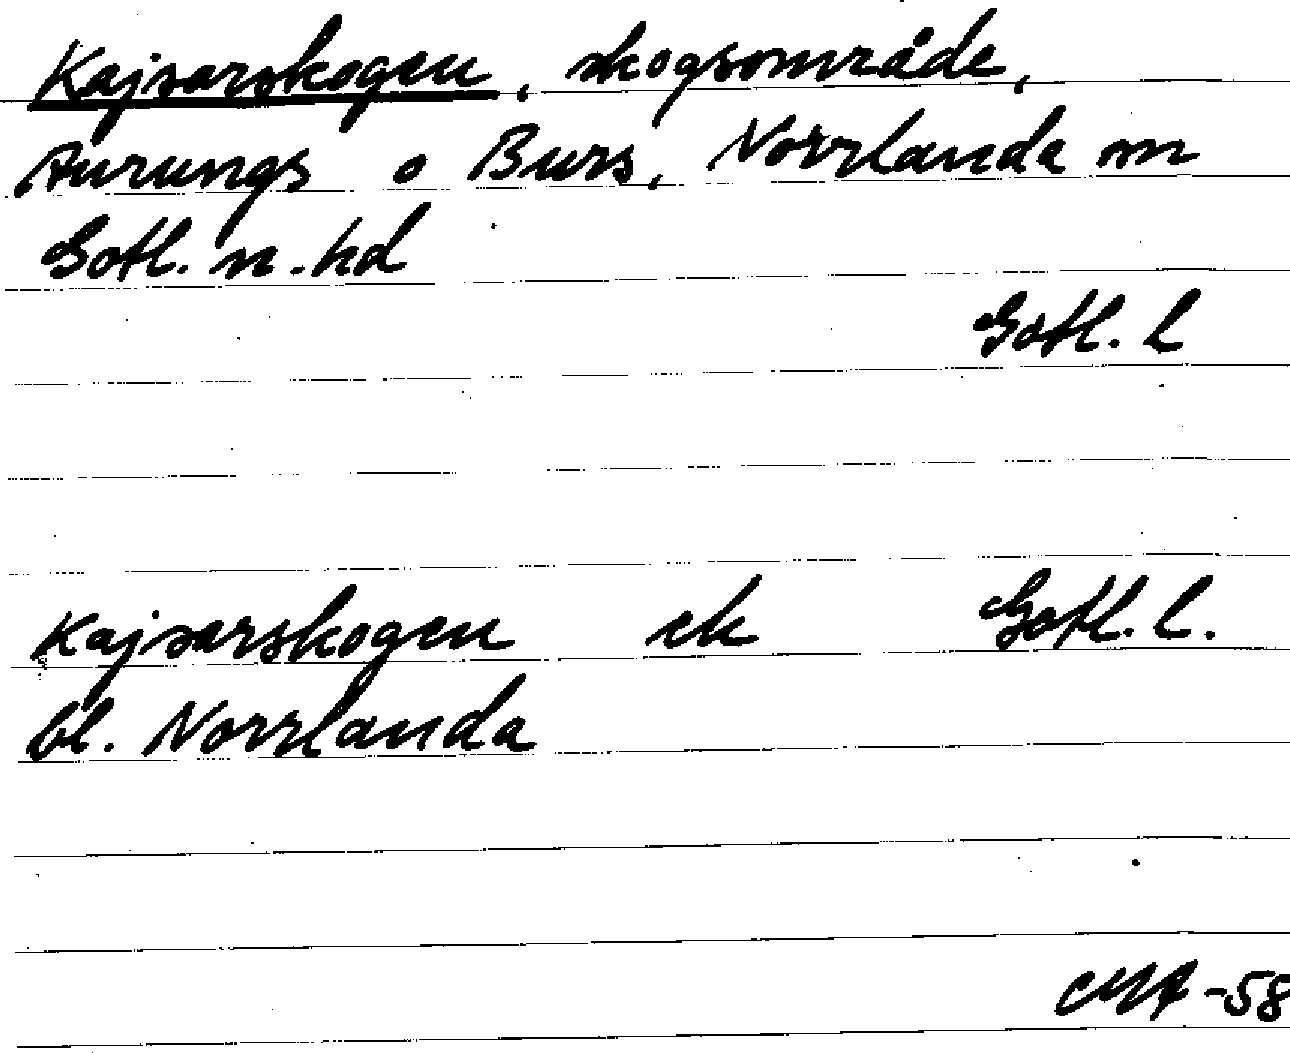 Kajsarskogen, skogsområde,
Aurungs o Burs, Norrlanda sn
Gotl. n. hd
Gotl. l
Kajsarskogen ek Gotl. l.
bl. Norrlanda
MA -58